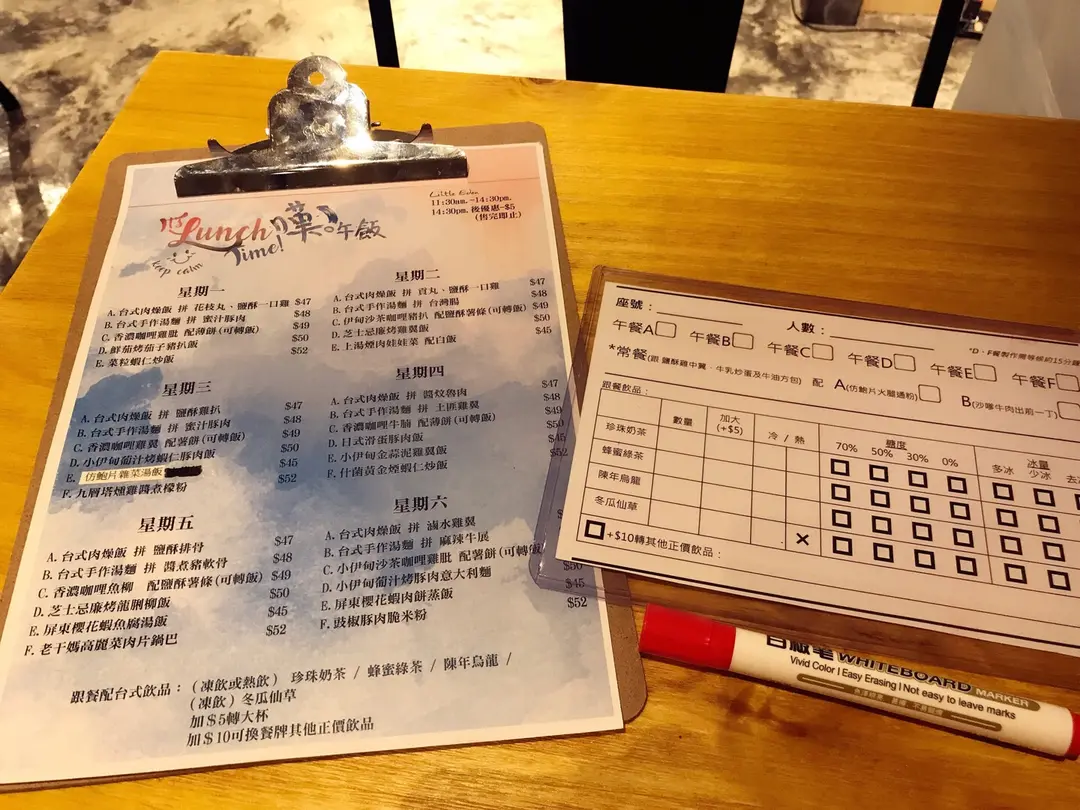 Little Eden
11:30am.-14:30pm.
14:30pm.後優惠-$5
(售完即止)
Lunch Time! 嘆午飯
keep calm
星期一
A. 台式肉燥飯 拼 花枝丸、鹽酥一口雞 $47
B. 台式手作湯麵 拼 蜜汁豚肉 $48
C. 香濃咖哩雞肶 配薄餅(可轉飯) $49
D. 鮮茄烤茄子豬扒飯 $50
E. 菜粒蝦仁炒飯 $52
星期二
A. 台式肉燥飯 拼 貢丸、鹽酥一口雞 $47
B. 台式手作湯麵 拼 台灣腸 $48
C. 伊甸沙茶咖哩豬扒 配鹽酥薯條(可轉飯) $49
D. 芝士忌廉烤雞翼飯 $50
E. 上湯煙肉娃娃菜 配白飯 $45
星期三
A. 台式肉燥飯 拼 鹽酥雞扒 $47
B. 台式手作湯麵 拼 蜜汁豚肉 $48
C. 香濃咖哩雞翼 配薯餅(可轉飯) $49
D. 小伊甸葡汁烤蝦仁豚肉飯 $50
E. 仿鮑片雜菜湯飯 $45
F. 九層塔燻雞醬煮檬粉 $52
星期四
A. 台式肉燥飯 拼 醬炆魯肉 $47
B. 台式手作湯麵 拼 土匪雞翼 $48
C. 香濃咖哩牛腩 配薄餅(可轉飯) $49
D. 日式滑蛋豚肉飯 $50
E. 小伊甸金蒜泥雞翼飯 $45
F. 什菌黃金炆蝦仁炒飯 $52
星期五
A. 台式肉燥飯 拼 鹽酥排骨 $47
B. 台式手作湯麵 拼 醬煮豬軟骨 $48
C. 香濃咖哩魚柳 配鹽酥薯條(可轉飯) $49
D. 芝士忌廉烤龍脷柳飯 $50
E. 屏東櫻花蝦魚腐湯飯 $45
F. 老干媽高麗菜肉片鍋巴 $52
星期六
A. 台式肉燥飯 拼 滷水雞翼
B. 台式手作湯麵 拼 麻辣牛展
C. 小伊甸沙茶咖哩雞肶 配薯餅(可轉飯
D. 小伊甸葡汁烤豚肉意大利麵
E. 屏東櫻花蝦肉餅蒸飯 $45
F. 豉椒豚肉脆米粉 $52
跟餐配台式飲品：(凍飲或熱飲) 珍珠奶茶 / 蜂蜜綠茶 / 陳年烏龍 /
(凍飲) 冬瓜仙草
加$5轉大杯
加$10可換餐牌其他正價飲品
座號： 人數：
*D、F餐製作需等候約15分鐘
午餐A 午餐B 午餐C 午餐D 午餐E 午餐F
*常餐(跟 鹽酥雞中翼、牛乳炒蛋及牛油方包) 配 A(仿鮑片火腿通粉) B(沙嗲牛肉出前一丁)
跟餐飲品：
數量 加大(+$5) 冷 / 熱 糖度 冰量
70% 50% 30% 0% 多冰 少冰 去
珍珠奶茶
蜂蜜綠茶
陳年烏龍
冬瓜仙草 ×
+$10轉其他正價飲品：
白板笔 WHITEBOARD MARKER
Vivid Color | Easy Erasing | Not easy to leave marks